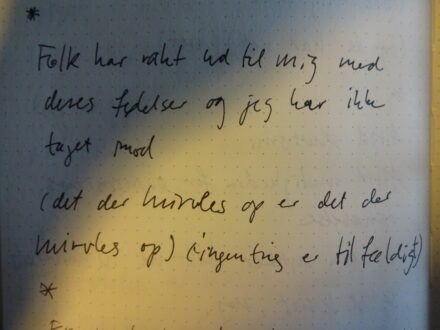 *
Folk har rakt ud til mig med
deres følelser og jeg har ikke
taget mod
(det der hvirvles op er det der
hvirvles op) (ingenting er tilfældigt)
*